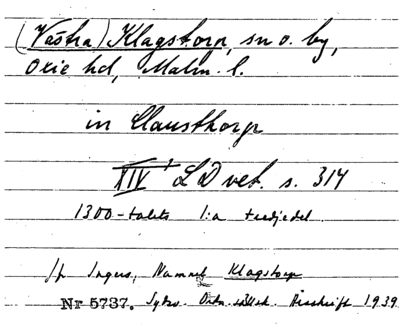 (Västra) Klagstorp, sn o. by,
Oxie hd, Malm. l.
in Clausthorp
XIV 1 LD vet. s. 314
1300-talets 1:a tredjedel
Jfr Ingers, Namnet Klagstorp
Nr 5737. Sydsv. Ortn.-sällsk. Årsskrift 1939